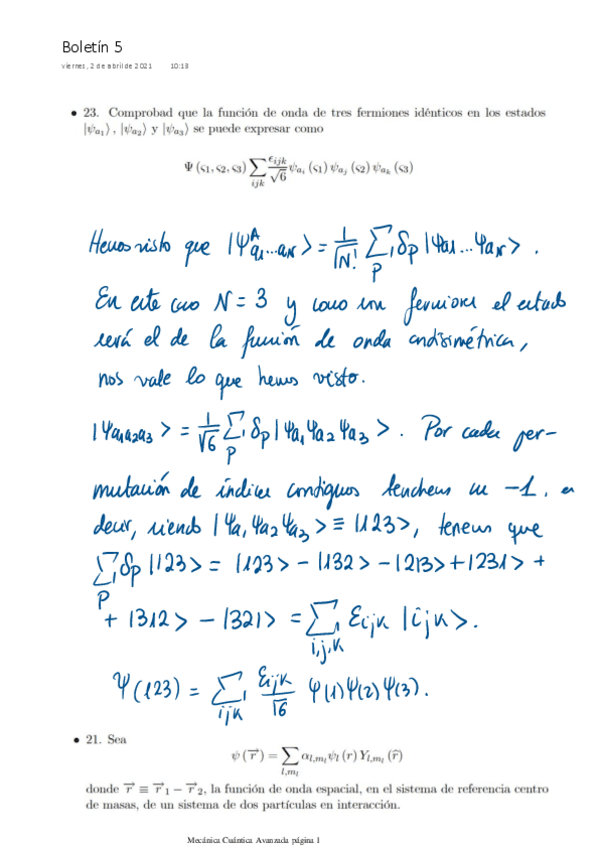 Boletín 5
viernes, 2 de abril de 2021 10:18
• 23. Comprobad que la función de onda de tres fermiones idénticos en los estados
|ψa₁⟩, |ψa₂⟩ y |ψa₃⟩ se puede expresar como
Ψ (ς₁, ς₂, ς₃) ∑ijk ϵijk/√6 ψai (ς₁) ψaj (ς₂) ψak (ς₃)
Hemos visto que |Ψᴬa₁...aN⟩ = 1/√N! ∑P δp |ψa₁...ψaN⟩.
En este caso N = 3 y como son fermiones el estado
será el de la función de onda antisimétrica,
nos vale lo que hemos visto.
|Ψa₁a₂a₃⟩ = 1/√6 ∑P δp |ψa₁ ψa₂ ψa₃⟩. Por cada per-
mutación de índices contiguos tenemos un -1, es
decir, siendo |ψa₁ ψa₂ ψa₃⟩ ≡ |123⟩, tenemos que
∑P δp |123⟩ = |123⟩ - |132⟩ - |213⟩ + |231⟩ +
+ |312⟩ - |321⟩ = ∑i,j,k Eijk |ijk⟩.
Ψ(123) = ∑ijk Eijk/√6 ψ(1)ψ(2)ψ(3).
• 21. Sea
ψ (r⃗) = ∑l,ml αl,ml ψl (r) Yl,ml (r̂)
donde r⃗ ≡ r⃗₁ − r⃗₂, la función de onda espacial, en el sistema de referencia centro
de masas, de un sistema de dos partículas en interacción.
Mecánica Cuántica Avanzada página 1